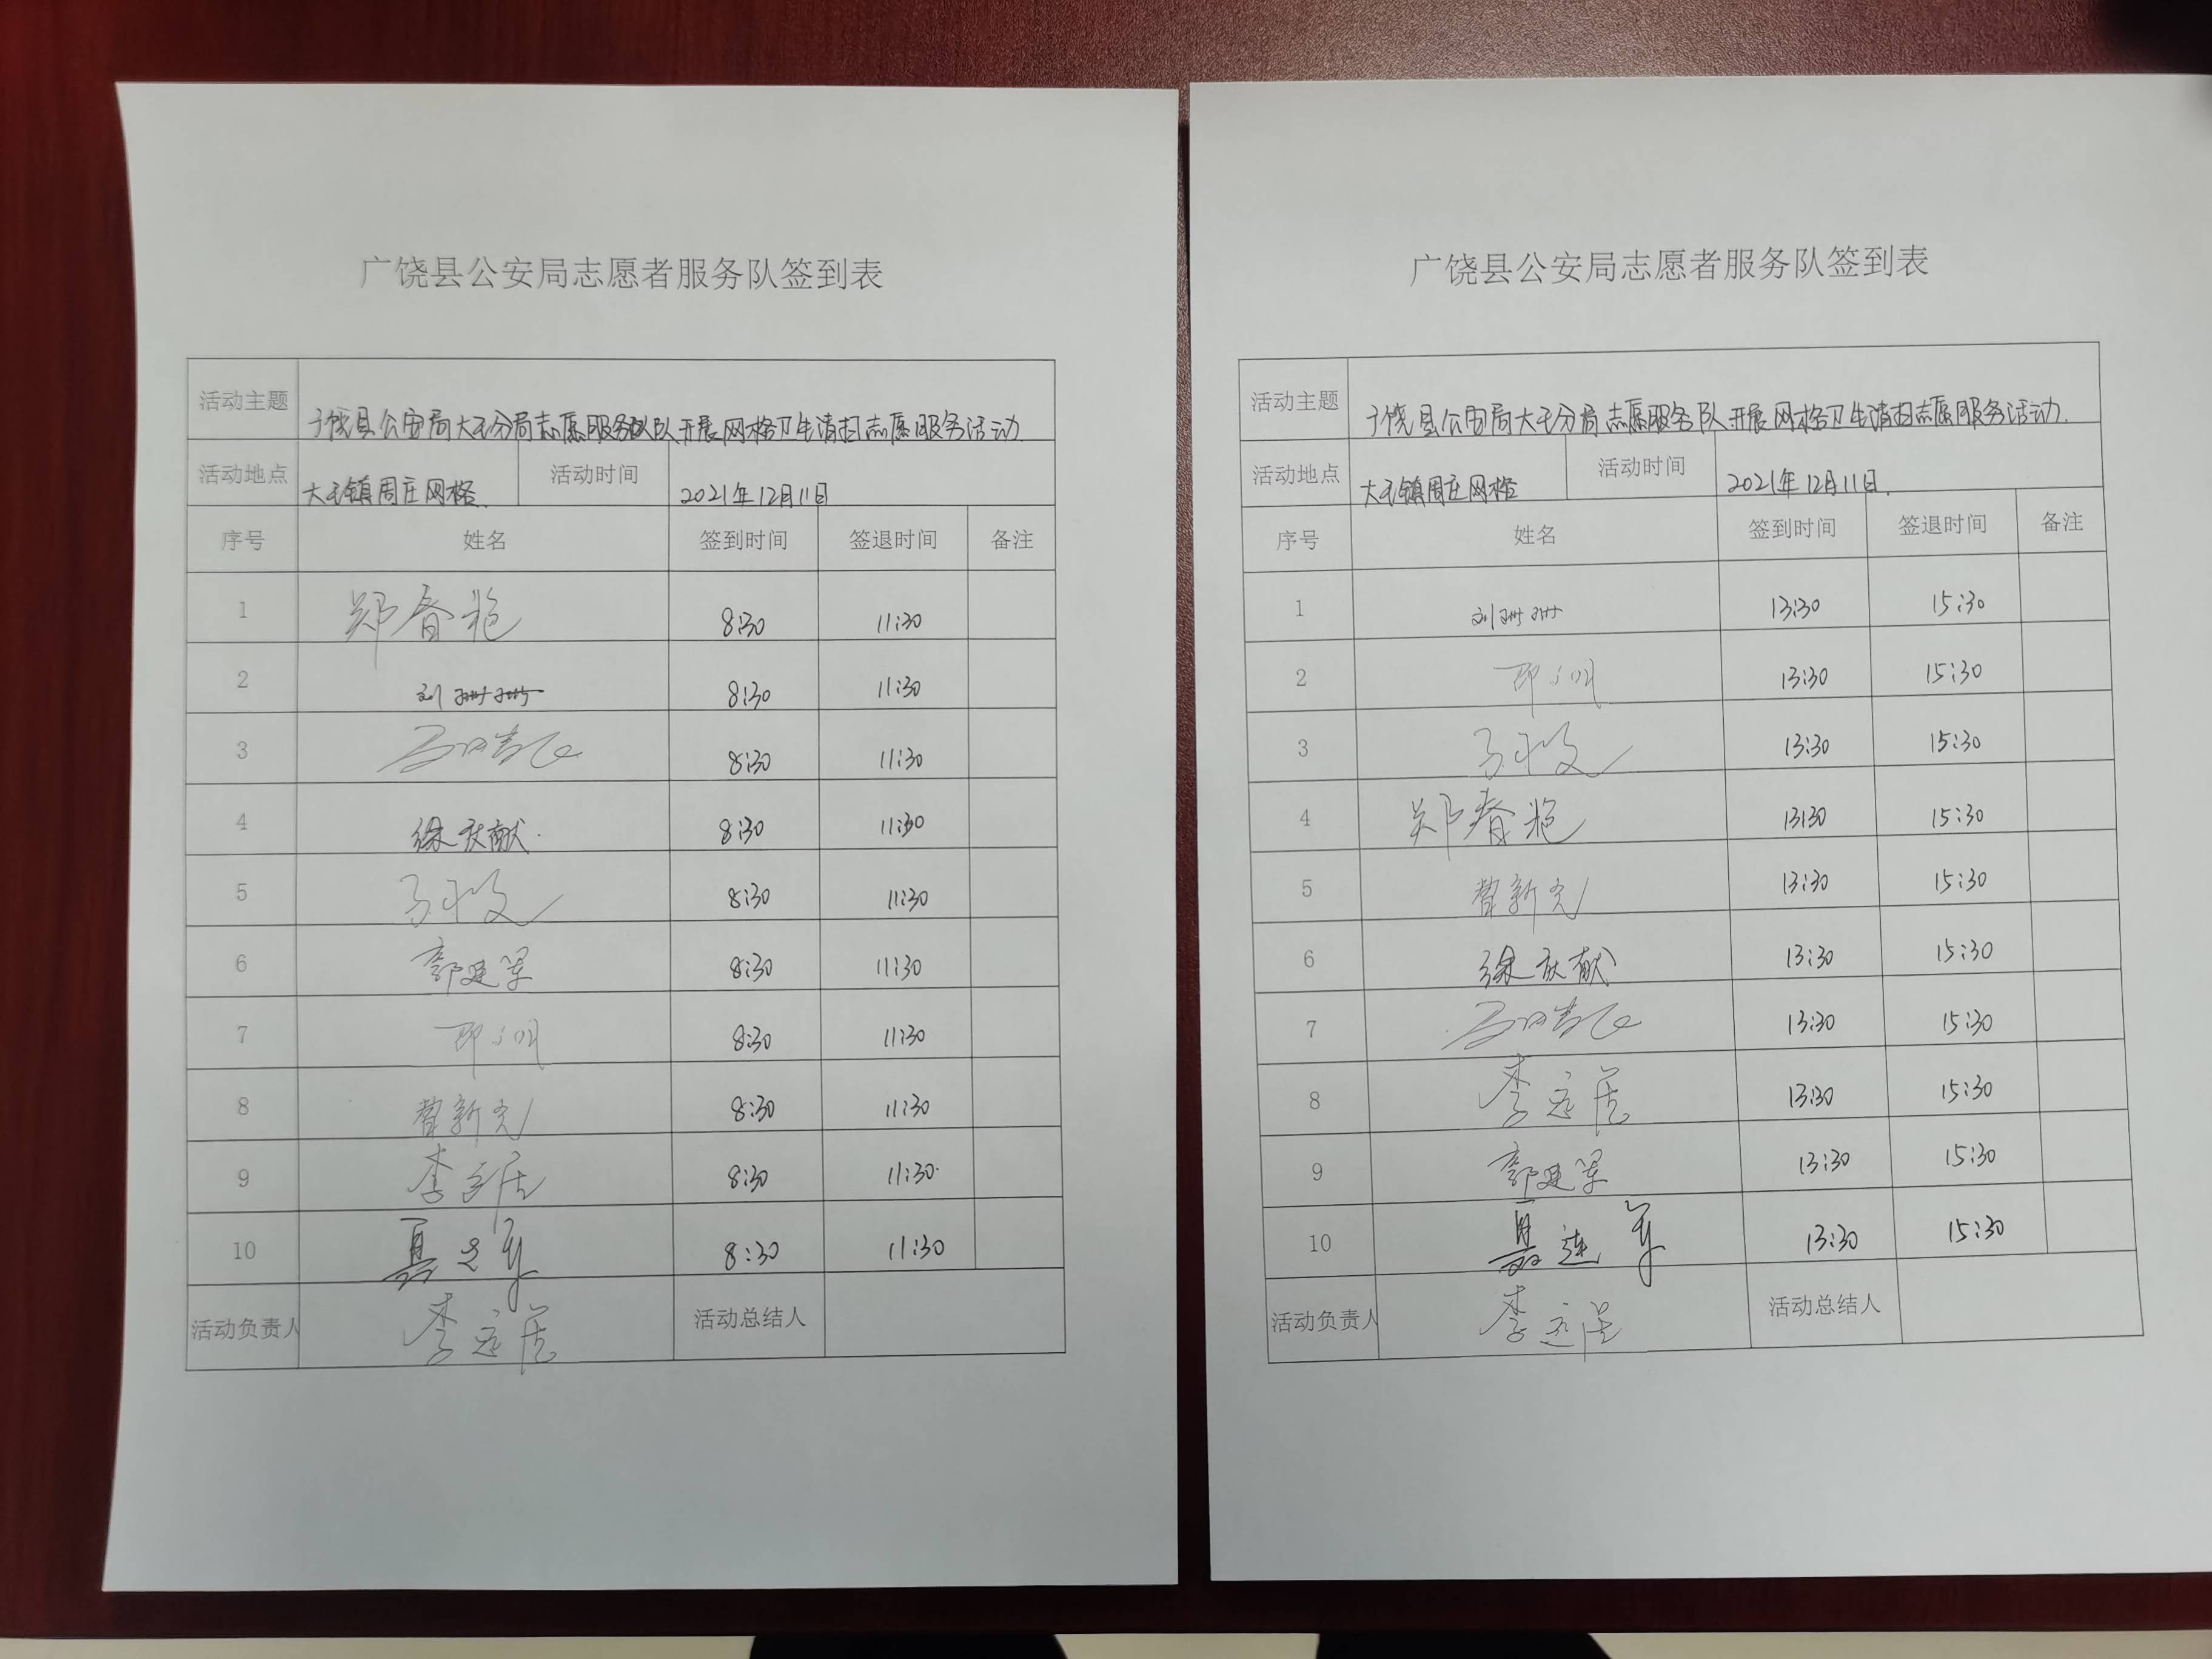 广饶县公安局志愿者服务队签到表
活动主题 广饶县公安局大王分局志愿服务队队开展网格卫生清扫志愿服务活动
活动地点 大王镇周庄网格. 活动时间 2021年12月11日
序号 姓名 签到时间 签退时间 备注
1 郑春艳 8:30 11:30
2 刘珊珊 8:30 11:30
3 8:30 11:30
4 徐庆献. 8:30 11:30
5 8:30 11:30
6 郭建军 8:30 11:30
7 8:30 11:30
8 新 8:30 11:30
9 李 8:30 11:30
10 聂 8:30 11:30
活动负责人 李 活动总结人
广饶县公安局志愿者服务队签到表
活动主题 广饶县公安局大王分局志愿服务队开展网格卫生清扫志愿服务活动.
活动地点 大王镇周庄网格 活动时间 2021年12月11日.
序号 姓名 签到时间 签退时间 备注
1 刘珊珊 13:30 15:30
2 13:30 15:30
3 13:30 15:30
4 郑春艳 13:30 15:30
5 新 13:30 15:30
6 徐庆献 13:30 15:30
7 13:30 15:30
8 李 13:30 15:30
9 郭建军 13:30 15:30
10 聂连军 13:30 15:30
活动负责人 李 活动总结人